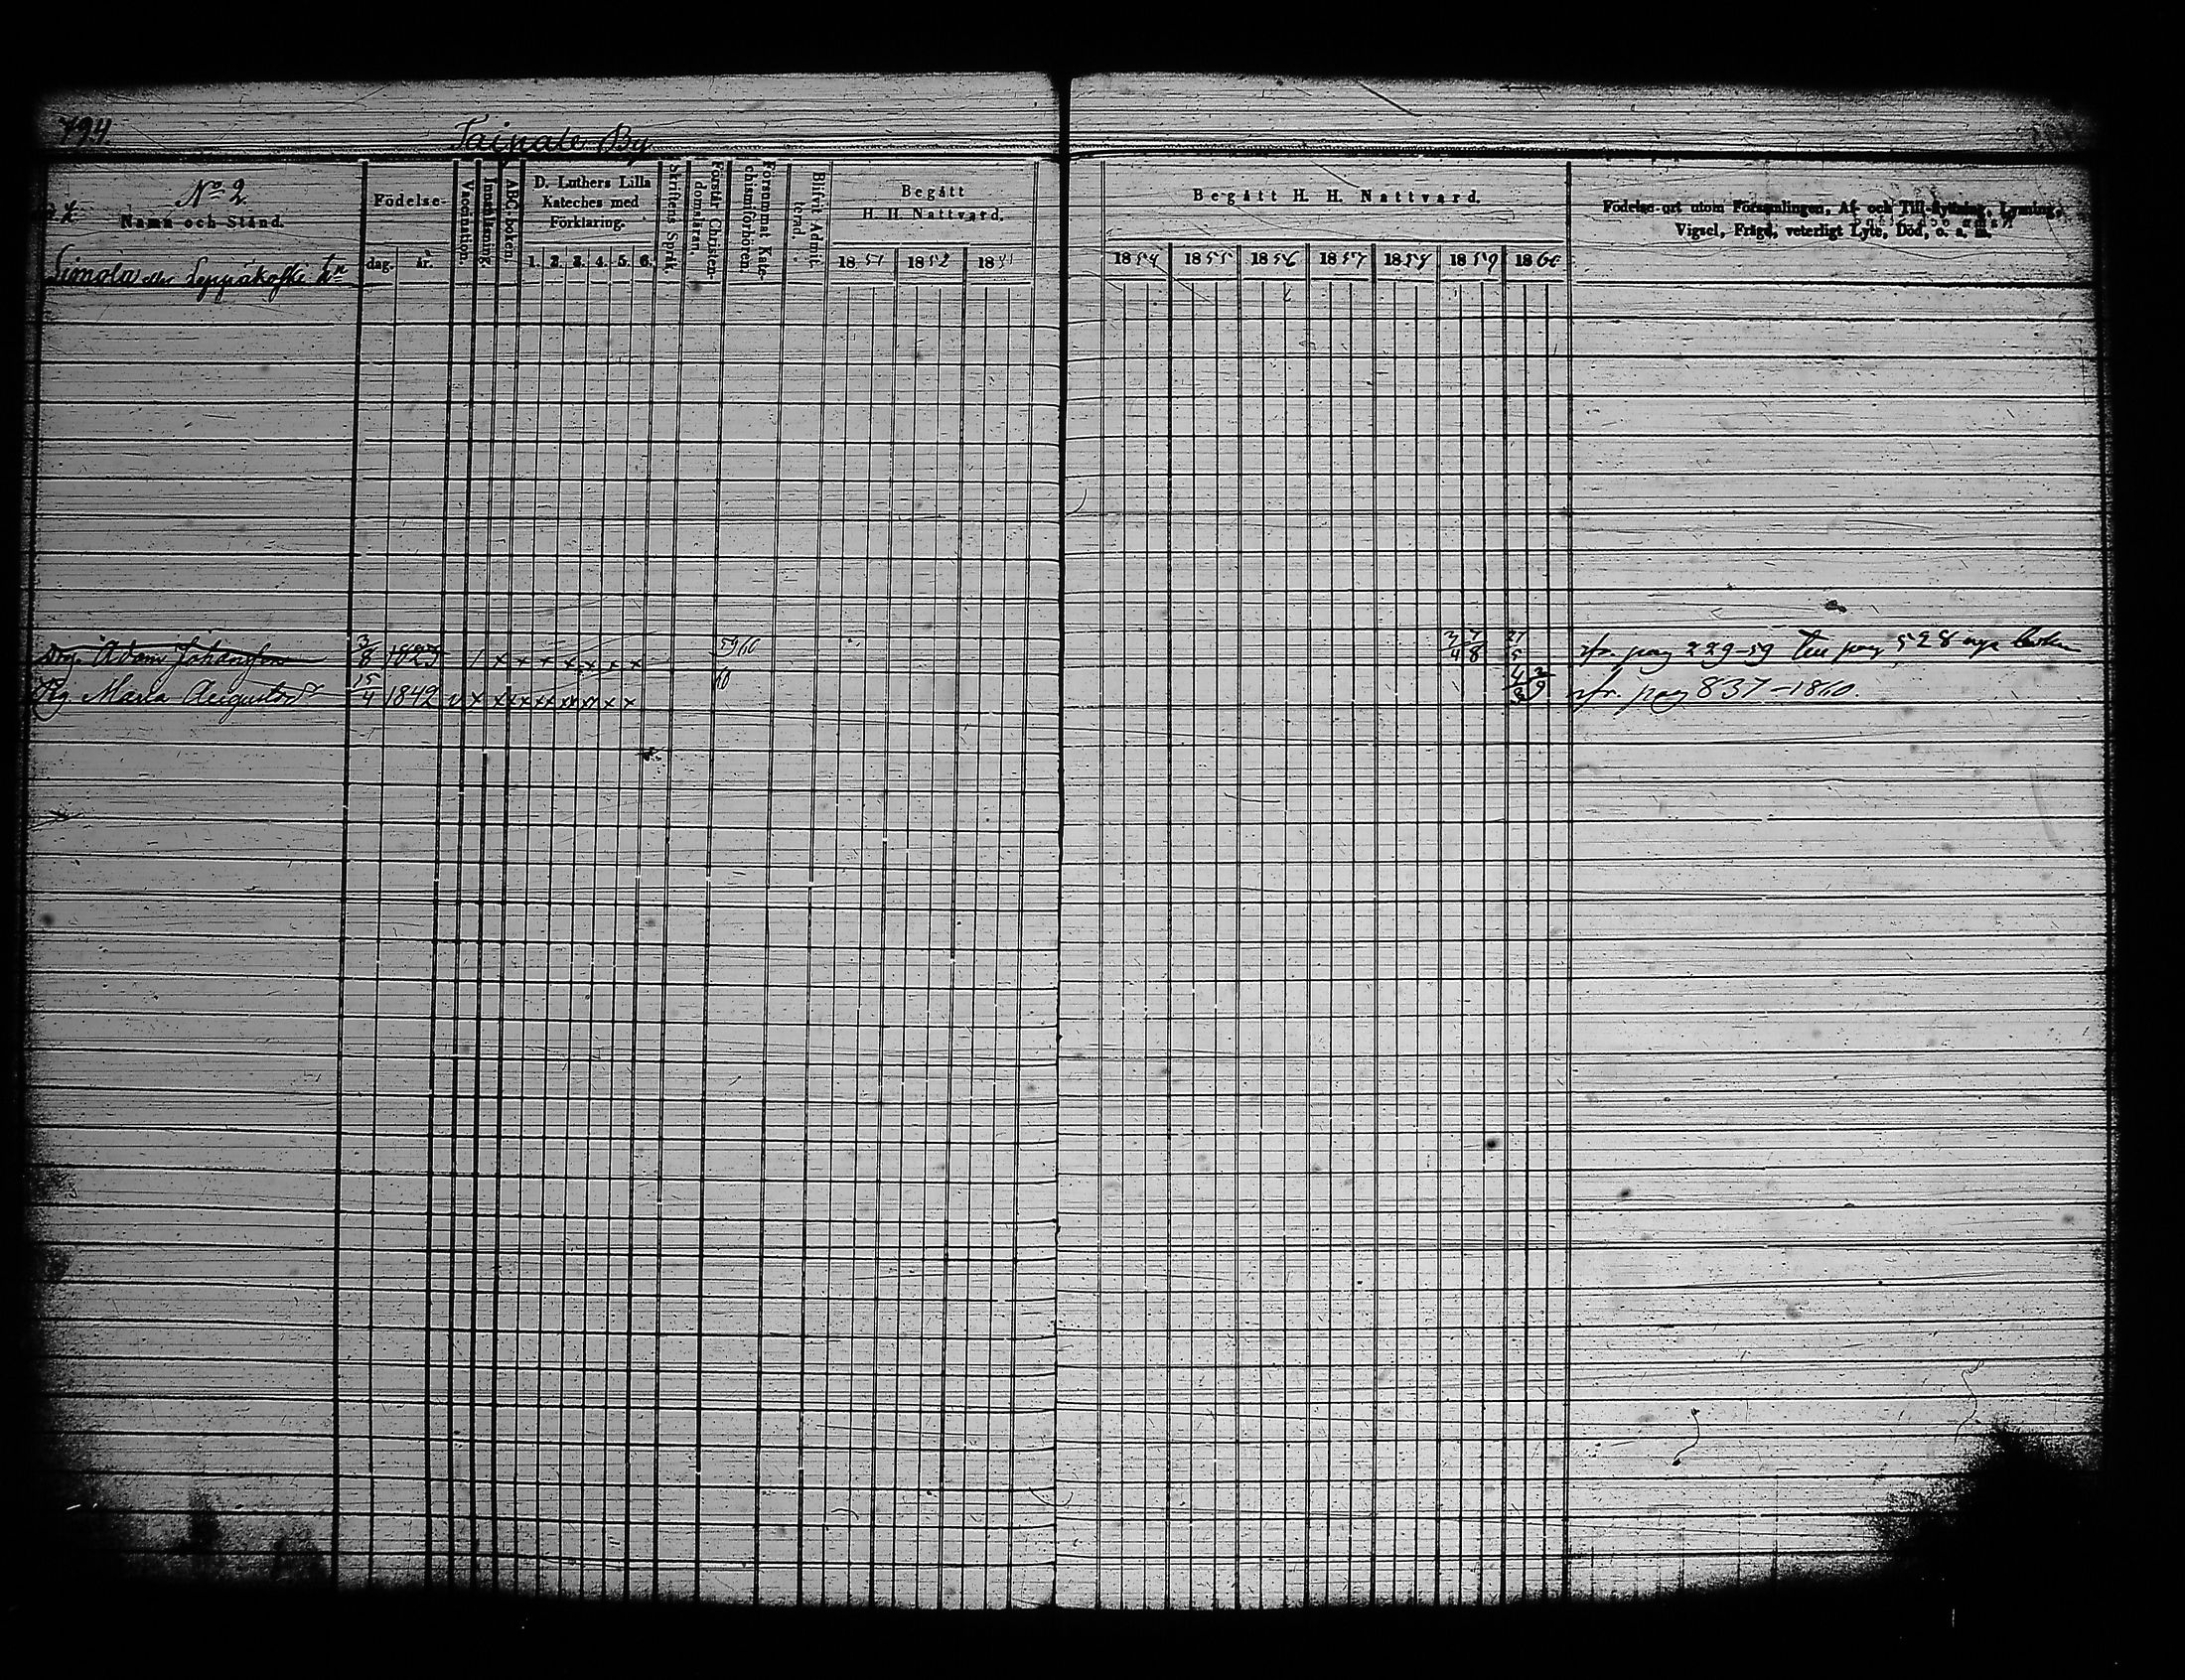 794
Taipale By
No 2
Namn och Stånd.
Simola eller Leppäkoski hn
Födelse-
dag.
år.
Vaccination.
Innanläsning.
ABC-boken.
D. Luthers Lilla
Kateches med
Förklaring.
1. 2. 3. 4. 5. 6.
Skriftens Språk.
Förstår Christendomsläran.
Försummat Katechismiförhören.
Blifvit Admitterad.
Begått
H. H. Nattvard.
1851 1852 1853
Begått H. H. Nattvard.
1854 1855 1856 1857 1858 1859 1860
Födelse-ort utom Församlingen, Af- och Till-flyttning, Lysning,
Vigsel, Frägd, veterligt Lyte, Död, o. a. m.
Drg. Adam Johansson 3/8 1825 / x x x x x x x 59 60 3/4 7/8 27/5 fr. pag 229-59 Till pag 528 nya boken
Pig. Maria Augustsdr 15/4 1842 v x x x x x x x x x 60 4/3 2/9 fr. pag 837-1860.